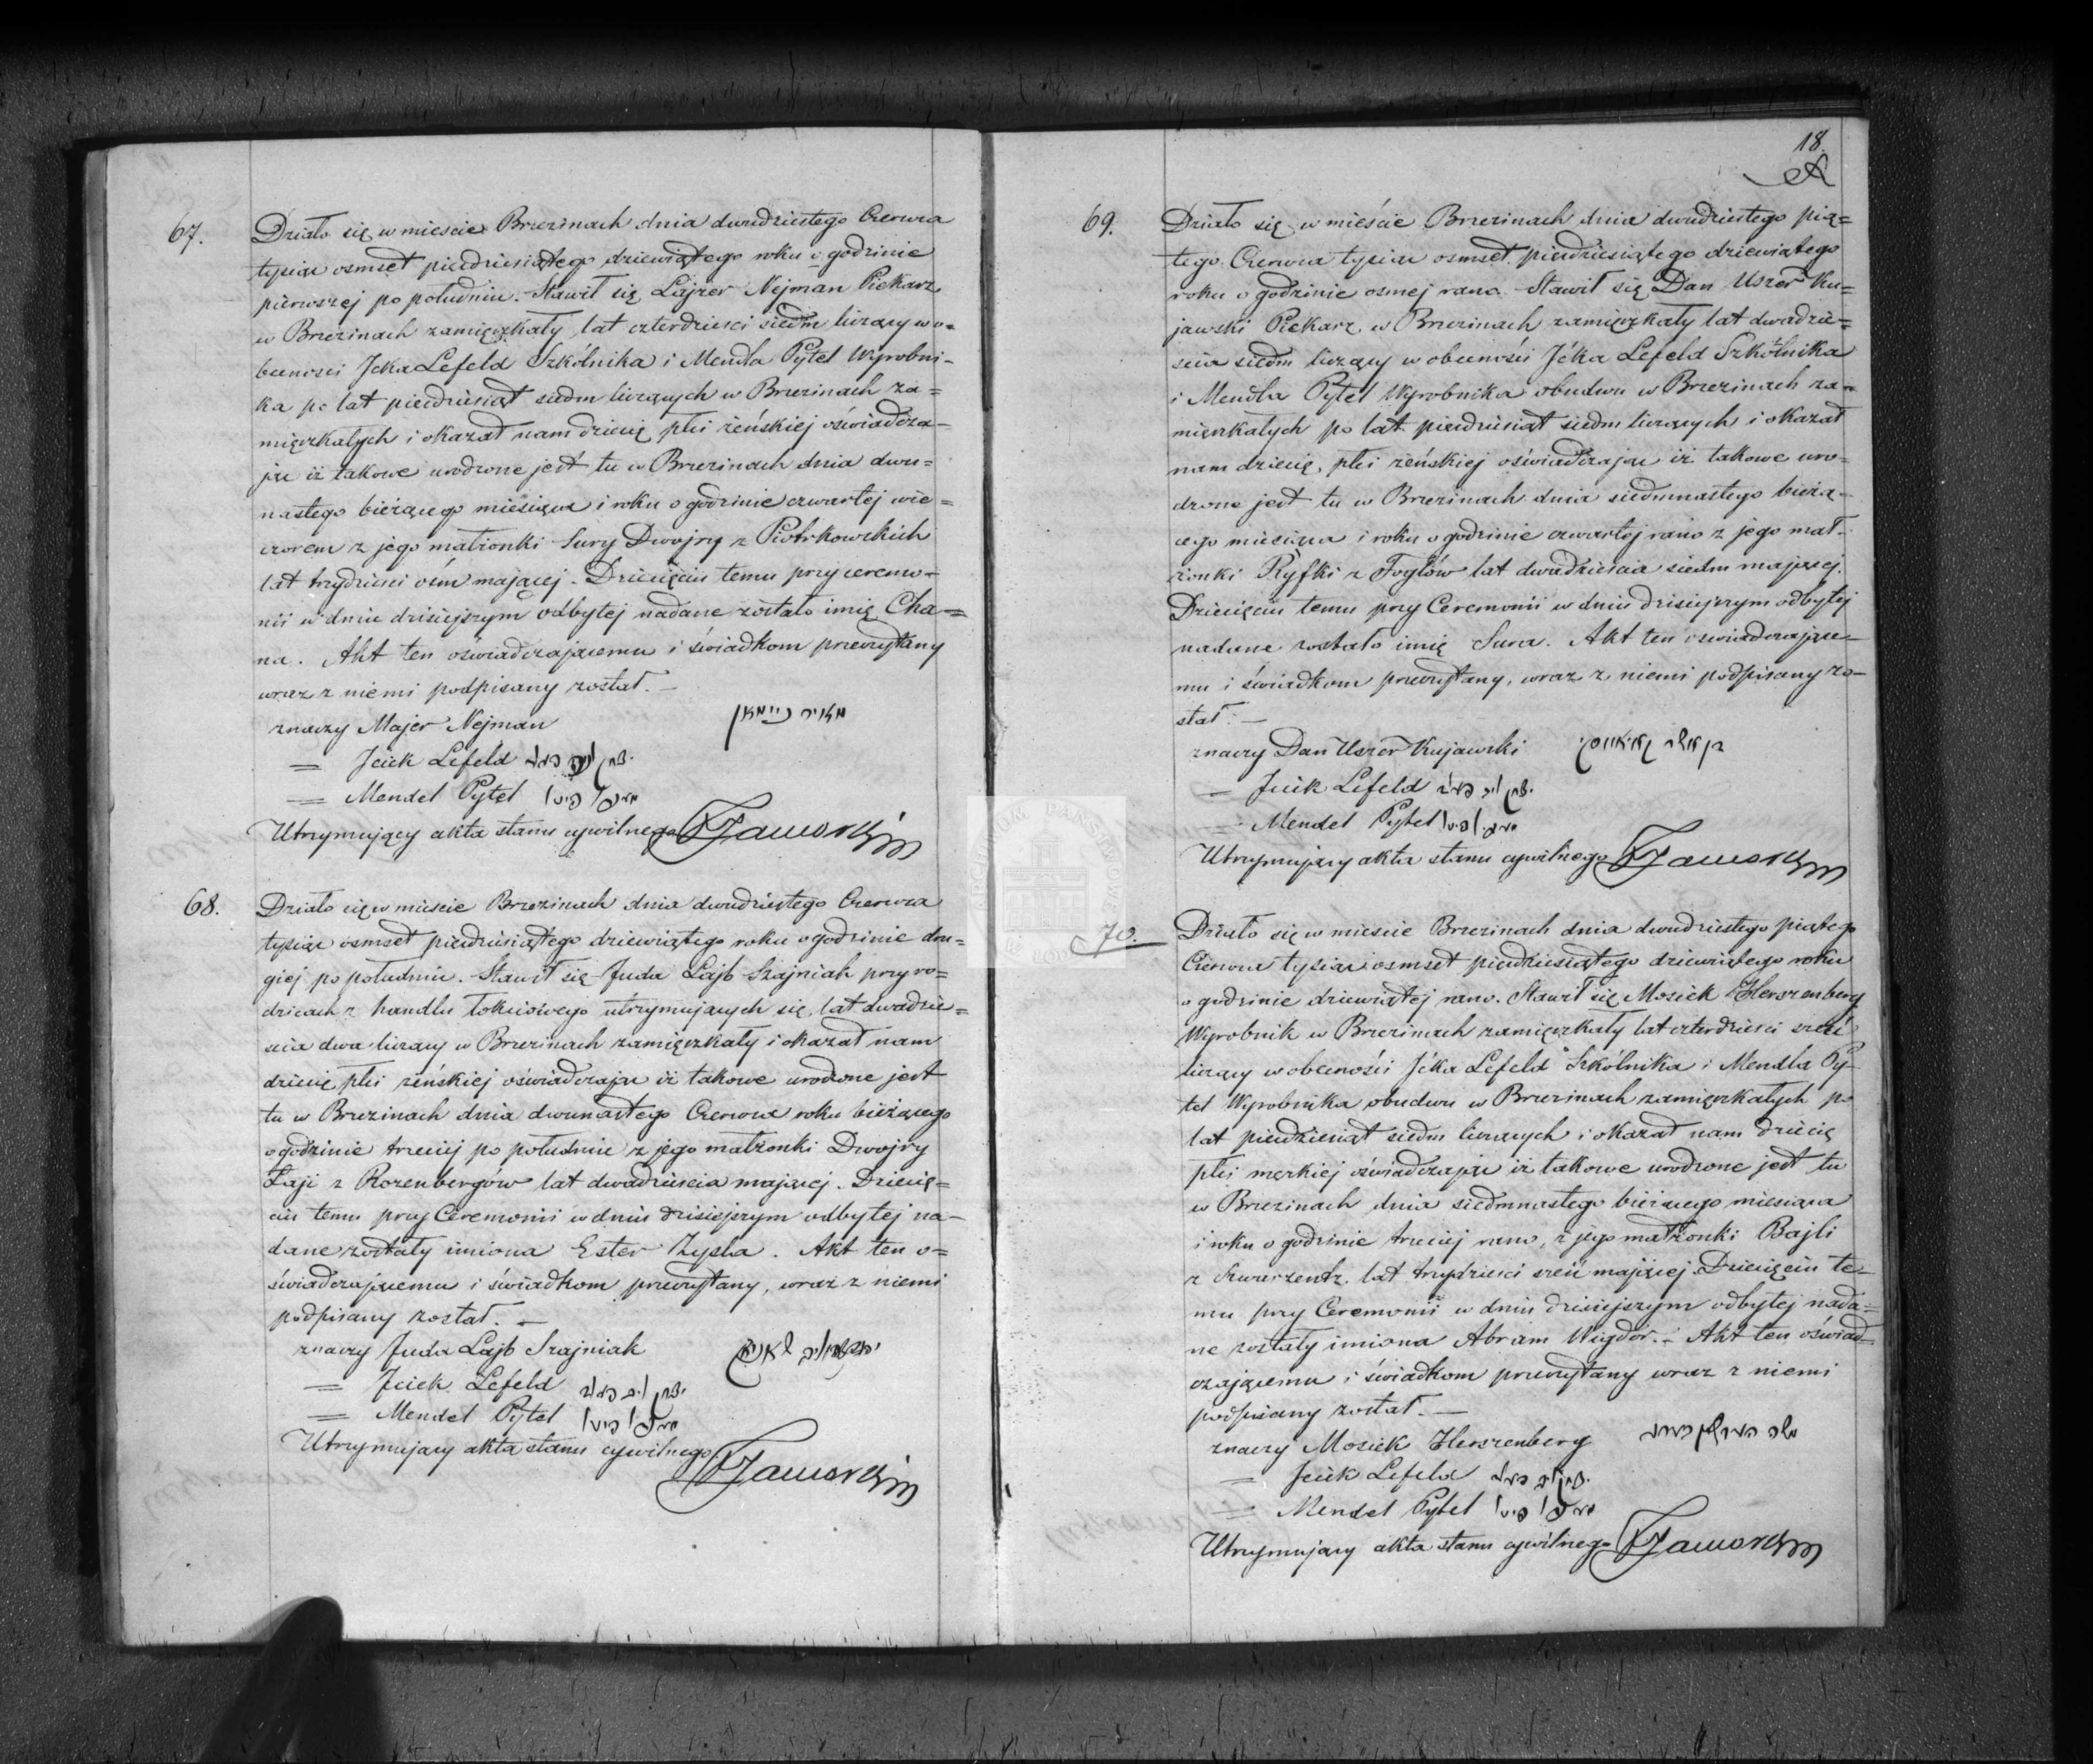 67.
Działo się w mieście Brzezinach dnia dwudziestego Czerwca
tysiąc osmset pięćdziesiątego dziewiątego roku o godzinie
pierwszej po południu. Stawił się Lajzer Nejman Piekarz
w Brzezinach zamięszkały, lat czterdzieści siedm liczący w o=
becności Jcka Lefeld Szkólnika i Mendla Pytel Wyrobni-
ka po lat piędziesiąt siedm liczących w Brzezinach za=
mięszkałych i okazał nam dziecię płci żeńskiej oświadcza-
jąc iż takowe urodzone jest tu w Brzezinach dnia dwu=
nastego bieżącego miesiąca i roku o godzinie czwartej wie=
czorem z jego małżonki Sury Dwojry z Piotrkowskich
lat trzydzieści ośm mającej. Dziecięciu temu przy ceremo-
nii w dniu dzisiejszym odbytej nadane zostało imię Cha=
na. Akt ten oświadczającemu i świadkom przeczytany
wraz z niemi podpisany został. —
znaczy Majer Nejman מאיר ניימאן
= Jcick Lefeld
= Mendel Pytel
Utrzymujący akta stanu cywilnego
68.
Działo się w mieście Brzezinach dnia dwudziestego Czerwca
tysiąc osmset piędziesiątego dziewiątego roku o godzinie dru=
giej po południu. Stawił się Juda Lajb Szajniak przy ro=
dzicach z handlu łokciowego utrzymujących się, lat dwadzie=
ścia dwa liczący w Brzezinach zamięszkały i okazał nam
dziecię płci żeńskiej oświadczając iż takowe urodzone jest
tu w Brzezinach dnia dwunastego Czerwca roku bieżącego
o godzinie trzeciej po południu z jego małżonki Dwojry
Łaji z Rozenbergów lat dwadzieścia mającej. Dziecię=
ciu temu przy Ceremonii w dniu dzisiejszym odbytej na-
dane zostały imiona Ester Zysla. Akt ten o=
świadczającemu i świadkom przeczytany, wraz z niemi
podpisany został. —
znaczy Juda Lajb Szajniak
= Jcick Lefeld
= Mendel Pytel
Utrzymujący akta stanu cywilnego
18.
69.
Działo się w mieście Brzezinach dnia dwudziestego pią=
tego Czerwca tysiąc osmset piędziesiątego dziewiątego
roku o godzinie osmej rano. Stawił się Dan Uszer Ku=
jawski Piekarz w Brzezinach zamięszkały lat dwadzie=
ścia siedm liczący w obecności Jcka Lefeld Szkólnika
i Mendla Pytel Wyrobnika obudwu w Brzezinach za=
mięszkałych po lat piędziesiąt siedm liczących i okazał
nam dziecię, płci żeńskiej oświadczając iż takowe uro-
dzone jest tu w Brzezinach dnia siedmnastego bieżą-
cego miesiąca i roku o godzinie czwartej rano z jego mał-
żonki Ryfki z Foglów lat dwadzieścia siedm mającej.
Dziecięciu temu przy Ceremonii w dniu dzisiejszym odbytej
nadane zostało imię Sura. Akt ten oświadczające-
mu i świadkom przeczytany, wraz z niemi podpisany zo-
stał. —
znaczy Dan Uszer Kujawski
— Jcick Lefeld
= Mendel Pytel
Utrzymujący akta stanu cywilnego
70.
Działo się w mieście Brzezinach dnia dwudziestego piątego
Czerwca tysiąc osmset piędziesiątego dziewiątego roku
o godzinie dziewiątej rano. Stawił się Mosiek Herszenberg
Wyrobnik w Brzezinach zamięszkały lat czterdzieści sześć
liczący w obecności Jcka Lefeld Szkólnika i Mendla Py-
tel Wyrobnika obudwu w Brzezinach zamięszkałych po
lat piędziesiąt siedm liczących i okazał nam dziecię
płci męzkiej oświadczając iż takowe urodzone jest tu
w Brzezinach dnia siedmnastego bieżącego miesiąca
i roku o godzinie trzeciej rano, z jego małżonki Bajli
z lat trzydzieści sześć mającej. Dziecięciu te-
mu przy Ceremonii w dniu dzisiejszym odbytej nada=
ne zostały imiona Abram Wigdor. — Akt ten oświad=
czającemu i świadkom przeczytany wraz z niemi
podpisany został. —
znaczy Mosiek Herszenberg
— Jcick Lefeld
= Mendel Pytel
Utrzymujący akta stanu cywilnego